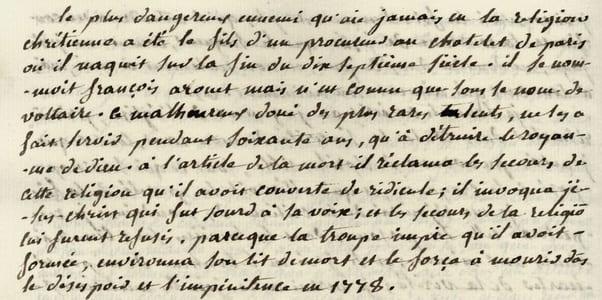 le plus dangereux ennemi qu'aie jamais eu la religion
chrêtienne a été le fils d'un procureur au chatelet de paris
où il naquit sur la fin du dix septieme siecle. il se nom-
-moit françois arouet mais n'est connu que sous le nom de
voltaire. ce malheureux doué des plus rares talents, ne les a
fait servir pendant soixante ans, qu'à détruire le royau-
-me de dieu. à l'article de la mort il réclama les secours de
cette religion qu'il avoit couverte de ridicule; il invoqua jé-
-sus-christ qui fut sourd à sa voix; et les secours de la religiõ
lui furent refusés. parceque la troupe impie qu'il avoit-
formée, environna son lit de mort et le força à mourir dãs
le désespoir et l'impénitence en 1778.